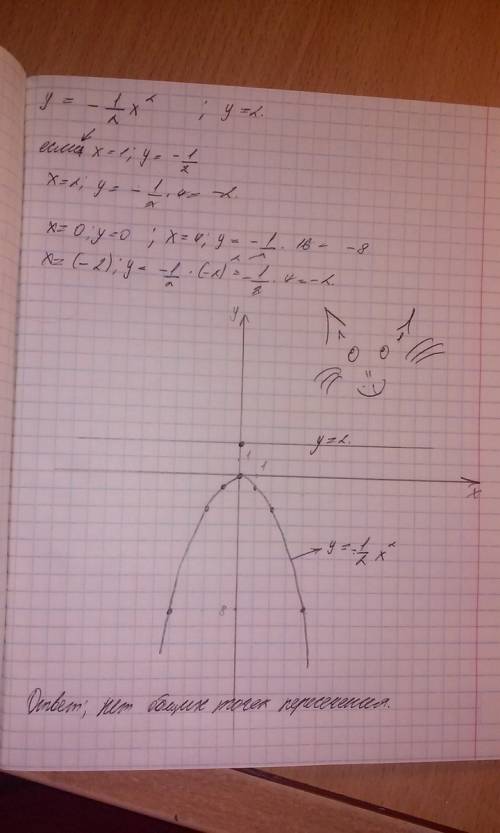 y = -1/2 x² ; y=2.
если x=1; y= -1/2
x=2; y= -1/2 · 4= -2.
x=0; y=0 ; x=4; y= -1/2 · 16 = -8
x= (-2); y= -1/2 · (-2)² = -1/8 · 4= -2.
y
y=2.
1
1
x
y=-1/2 x²
8
Ответ; нет общих точек пересечения.